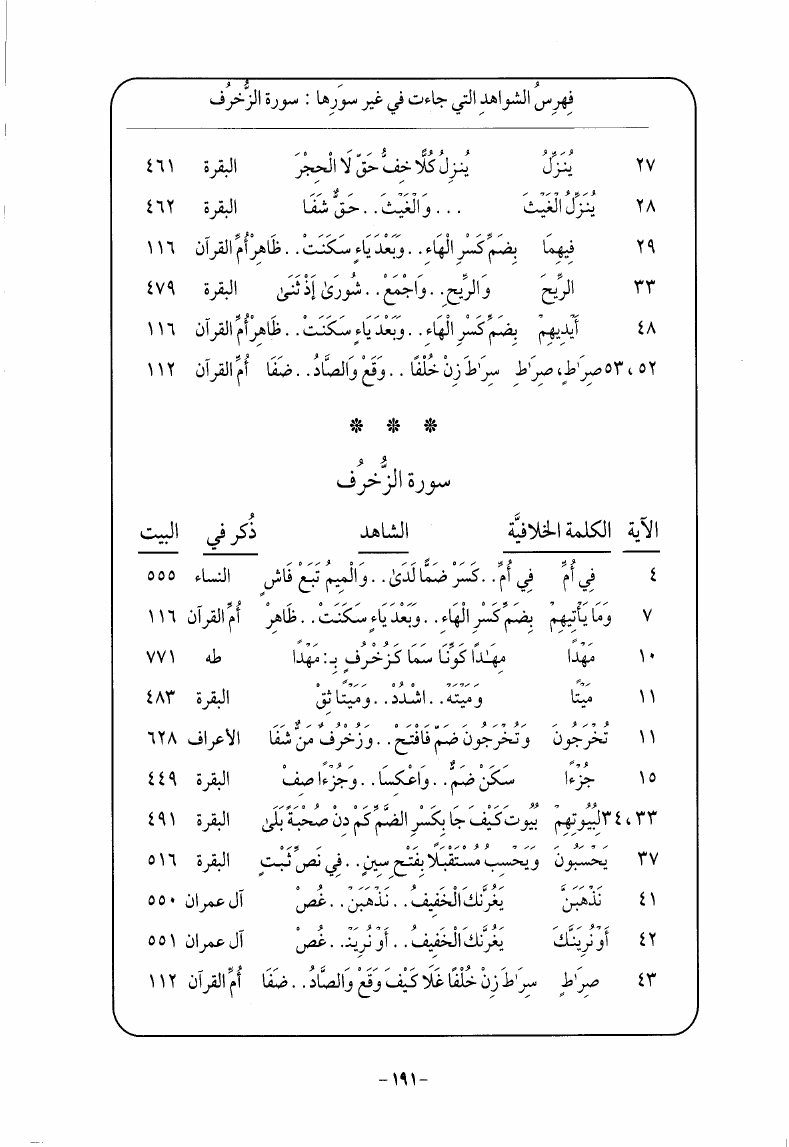 فِهرِسُ الشواهد التي جاءت في غير سوَرِها : سورة الزُّخرُف
٢٧ يُنَزِّلُ يُنزِلُ كُلًّا خِفُّ حَقٍّ لَا الْحِجْرَ البقرة ٤٦١
٢٨ يُنَزِّلُ الْغَيْثَ ... وَالْغَيْثَ..حَقٌّ شَفَا البقرة ٤٦٢
٢٩ فِيهِمَا بِضَمِّ كَسْرِ الْهَاءِ..وَبَعْدَ يَاءٍ سَكَنَتْ..ظَاهِرٌ أُمّ القرآن ١١٦
٣٣ الرِّيحَ وَالرِّيحِ..وَاجْمَعْ..شُورَىٰ إِذْ ثَنَىٰ البقرة ٤٧٩
٤٨ أَيْدِيهِمْ بِضَمِّ كَسْرِ الْهَاءِ..وَبَعْدَ يَاءٍ سَكَنَتْ..ظَاهِرٌ أُمّ القرآن ١١٦
٥٢، ٥٣ صِرَاطٍ، صِرَاطِ سِرَاطَ زِنْ خُلْفًا..وَقَعْ وَالصَّادُ..ضَفَا أُمّ القرآن ١١٢
* * *
سورة الزُّخرُف
الآية الكلمة الخلافيَّة الشاهد ذُكر في البيت
٤ فِي أُمِّ فِي أُمِّ..كَسْرُ ضَمًّا لَدَىٰ..وَالْمِيمُ تَبَعْ فَاشٍ النساء ٥٥٥
٧ وَمَا يَأْتِيهِمْ بِضَمِّ كَسْرِ الْهَاءِ..وَبَعْدَ يَاءٍ سَكَنَتْ..ظَاهِرٌ أُمّ القرآن ١١٦
١٠ مَهْدًا مِهَٰدًا كَوِّنَا سَمَا كَزُخْرُفٍ بِـ:مَهْدًا طه ٧٧١
١١ مَيْتًا وَمَيْتَه..اشْدُدْ..وَمَيْتًا ثِقْ البقرة ٤٨٣
١١ تُخْرَجُونَ وَتُخْرَجُونَ ضَمَّ فَافْتَح..وَزُخْرُفٌ مَنْ شَفَا الأعراف ٦٢٨
١٥ جُزْءًا سَكَنْ ضَمٌّ..وَاعْكِسَا..وَجُزْءًا صِفْ البقرة ٤٤٩
٣٣، ٣٤ لِبُيُوتِهِمْ بُيُوتَ كَيْفَ جَا بِكَسْرِ الضَّمِّ كَمْ دِنْ صُحْبَةً بَلَىٰ البقرة ٤٩١
٣٧ يَحْسَبُونَ وَيَحْسِبُ مُسْتَقْبَلًا بِفَتْحِ سِينٍ..فِي نَصِّ ثَبْتٍ البقرة ٥١٦
٤١ نَذْهَبَنَّ يَغُرَّنْكَ الْخَفِيفُ..نَذْهَبَنْ..غُصْ آل عمران ٥٥٠
٤٢ أَوْ نُرِيَنَّكَ يَغُرَّنْكَ الْخَفِيفُ..أَوْ نُرِيَنْ..غُصْ آل عمران ٥٥١
٤٣ صِرَاطٍ سِرَاطَ زِنْ خُلْفًا غَلَا كَيْفَ وَقَعْ وَالصَّادُ..ضَفَا أُمّ القرآن ١١٢
-١٩١-